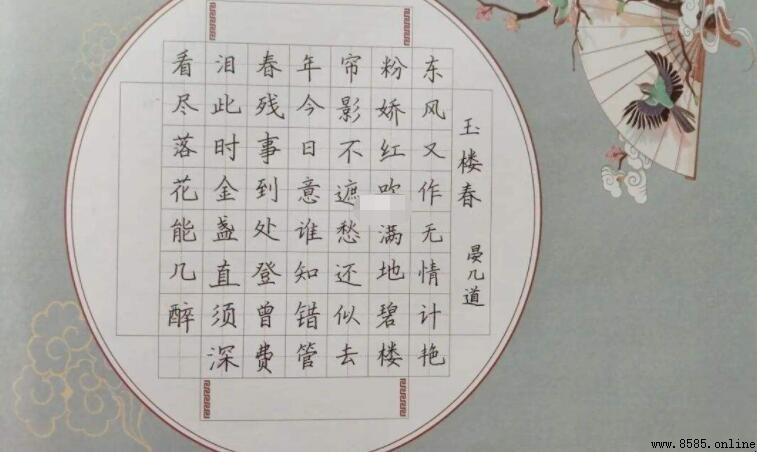 玉楼春 晏几道
东风又作无情计艳
粉娇红吹满地碧楼
帘影不遮愁还似去
年今日意谁知错管
春残事到处登曾费
泪此时金盏直须深
看尽落花能几醉
www.8585.online